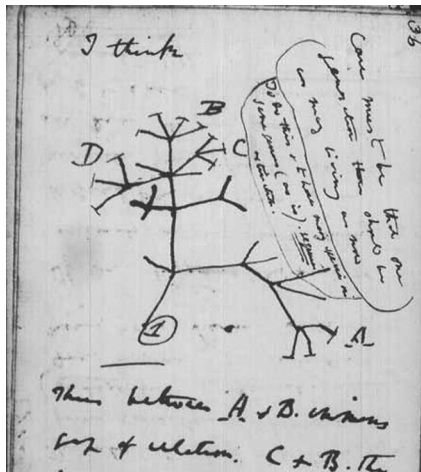 36
I think
Case must be that one
generation then should be
as many living as now
To do this & to have many species in
same genus (as is). requires
extinction.
B
D
C
A
1
Thus between A & B. immense
gap of relation. C & B. The